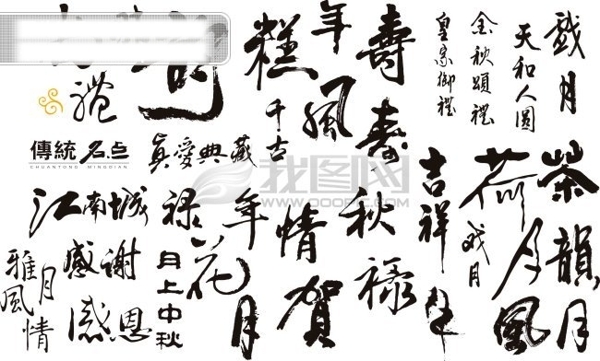 糕
年
風
壽
壽
千古
皇家御禮
金秋頌禮
天和人圓
戲月
禮
傳統名点
CHUANTONG MINGDIAN
真愛典藏
我图网
江南城
祿
年
情
秋
祿
吉祥
荷
茶韻
月
風
月
感謝
感恩
月上中秋
花
月
賀
雅風
月情